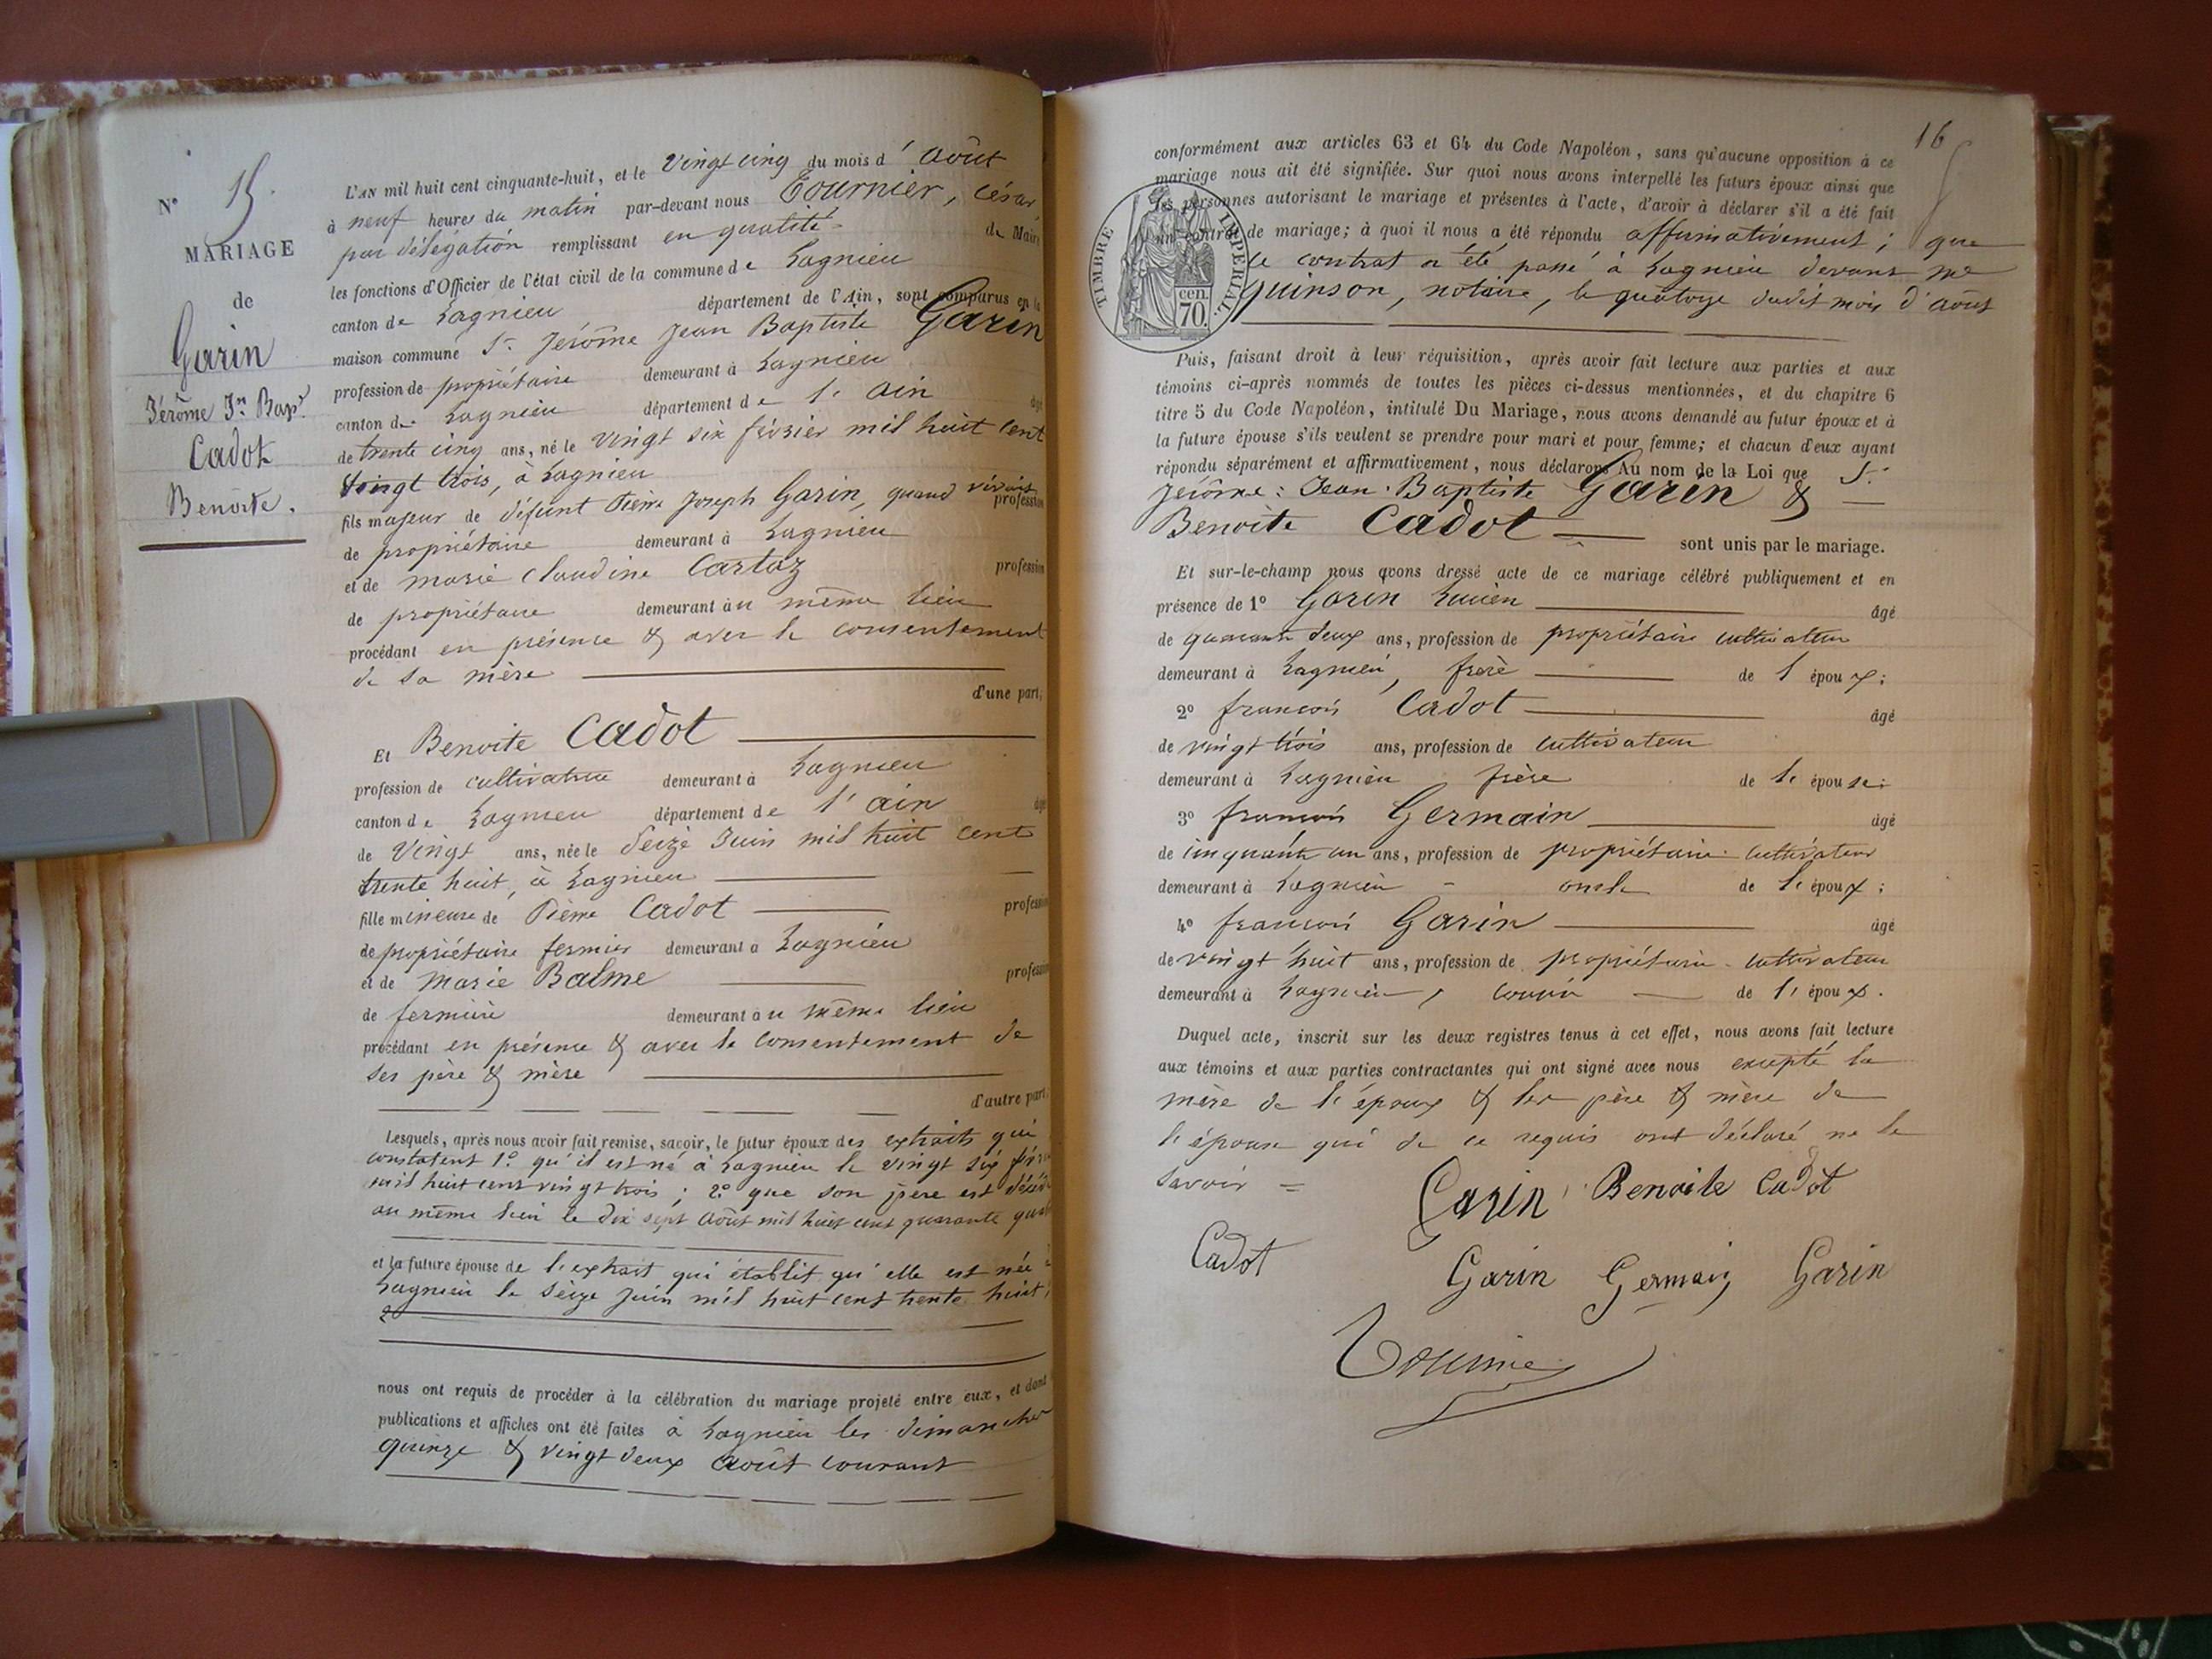 N° 15.
MARIAGE
de
Garin
Jérôme Jn. Bapt.
Cadot
Benoite.
L'AN mil huit cent cinquante-huit, et le vingt cinq du mois d' août
à neuf heures du matin par-devant nous Tournier, César,
par délégation remplissant en qualité de Maire
les fonctions d'Officier de l'état civil de la commune de Lagnieu
canton de Lagnieu département de l'Ain, sont comparus en la
maison commune Sr. Jérôme Jean Baptiste Garin
profession de propriétaire demeurant à Lagnieu
canton de Lagnieu département de l'ain âgé
de trente cinq ans, né le vingt six février mil huit cent
vingt trois, à Lagnieu
fils majeur de défunt Pierre Joseph Garin, quand vivait profession
de propriétaire demeurant à Lagnieu
et de marie Claudine Cartaz profession
de propriétaire demeurant au même lieu
procédant en présence & avec le consentement
de sa mère
d'une part;
Et Benoite Cadot
profession de cultivatrice demeurant à Lagnieu
canton de Lagnieu département de l'ain âgé
de vingt ans, née le seize Juin mil huit cent
trente huit, à Lagnieu
fille mineure de Pierre Cadot profession
de propriétaire fermier demeurant à Lagnieu
et de Marie Balme profession
de fermière demeurant au même lieu
procédant en présence & avec le consentement de
ses père & mère
d'autre part.
Lesquels, après nous avoir fait remise, savoir, le futur époux des extraits qui
constatent 1° qu'il est né à Lagnieu le vingt six
mil huit cent vingt trois ; 2° que son père est
au même lieu le dix sept août mil huit cent quarante
et la future épouse de l'extrait qui établit qu'elle est née
Lagnieu le seize juin mil huit cent trente huit
nous ont requis de procéder à la célébration du mariage projeté entre eux, et dont
publications et affiches ont été faites à Lagnieu les dimanches
quinze & vingt deux août courant
16
conformément aux articles 63 et 64 du Code Napoléon, sans qu'aucune opposition à ce
mariage nous ait été signifiée. Sur quoi nous avons interpellé les futurs époux ainsi que
les personnes autorisant le mariage et présentes à l'acte, d'avoir à déclarer s'il a été fait
un contrat de mariage; à quoi il nous a été répondu affirmativement ; que
le contrat a été passé à Lagnieu devant me
quinson, notaire, le quatorze dudit mois d'août
TIMBRE IMPÉRIAL.
70. cen.
Puis, faisant droit à leur réquisition, après avoir fait lecture aux parties et aux
témoins ci-après nommés de toutes les pièces ci-dessus mentionnées, et du chapitre 6
titre 5 du Code Napoléon, intitulé Du Mariage, nous avons demandé au futur époux et à
la future épouse s'ils veulent se prendre pour mari et pour femme; et chacun d'eux ayant
répondu séparément et affirmativement, nous déclarons Au nom de la Loi que Sr.
Jérôme : Jean - Baptiste Garin &
Benoite Cadot
sont unis par le mariage.
Et sur-le-champ nous avons dressé acte de ce mariage célébré publiquement et en
présence de 1° Garin Lucien âgé
de quarante deux ans, profession de propriétaire cultivateur
demeurant à Lagnieu, frère de l époux;
2° françois Cadot âgé
de vingt trois ans, profession de cultivateur
demeurant à Lagnieu frère de l' épouse;
3° françois Germain âgé
de cinquante un ans, profession de propriétaire cultivateur
demeurant à Lagnieu - oncle de l' époux;
4° françois Garin âgé
de vingt huit ans, profession de propriétaire - cultivateur
demeurant à Lagnieu, cousin de l' époux.
Duquel acte, inscrit sur les deux registres tenus à cet effet, nous avons fait lecture
aux témoins et aux parties contractantes qui ont signé avec nous excepté la
mère de l'époux & les père & mère de
l'épouse qui de ce requis ont déclaré ne le
savoir =
Garin Benoite Cadot
Cadot
Garin Germain Garin
Tournier